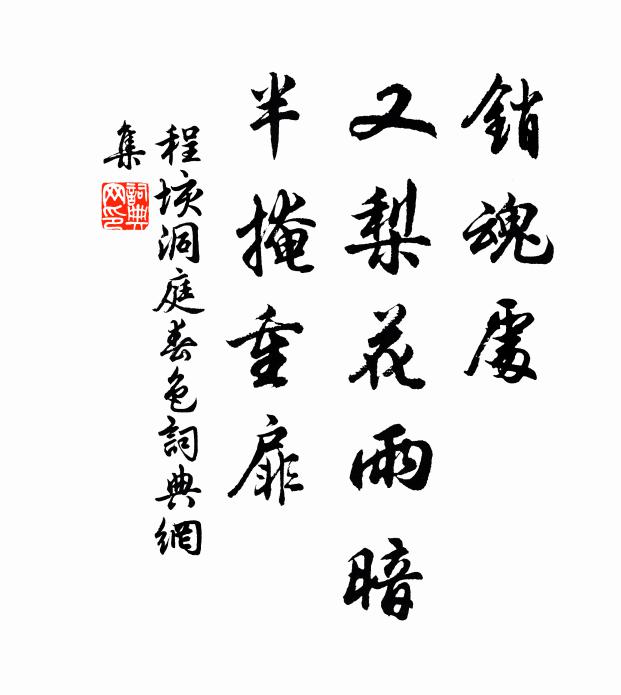 銷魂處
又梨花雨暗
半掩重扉
程垓洞庭春色詞典網
集
詞典
网印